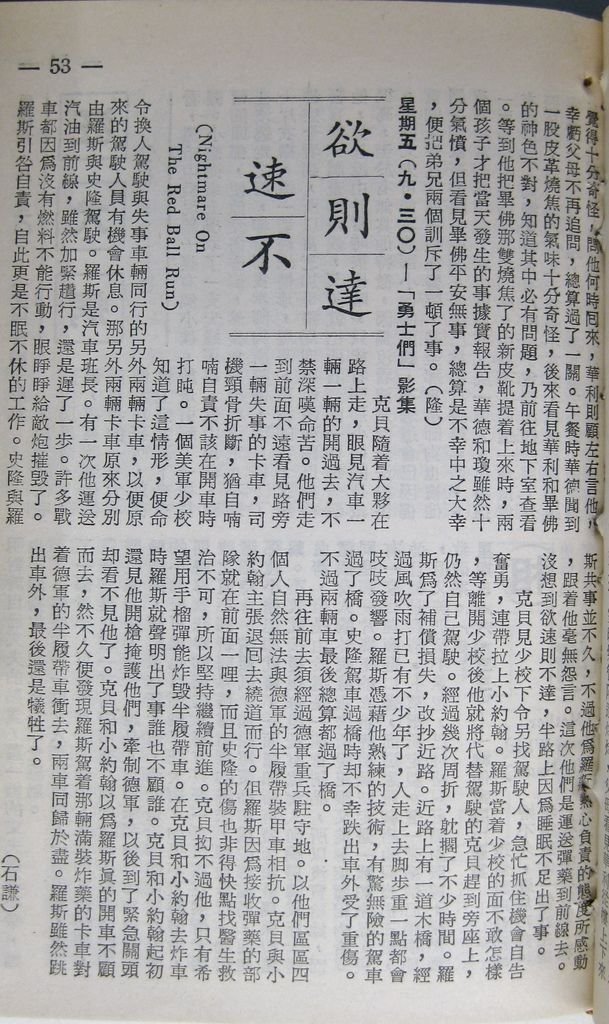 — 53 —
覺得十分奇怪，問他何時回來，華利則顧左右言他，
幸虧父母不再追問，總算過了一關。午餐時華德聞到
一股皮革燒焦的氣味十分奇怪，後來看見華利和畢佛
的神色不對，知道其中必有問題，乃前往地下室查看
。等到他把畢佛那雙燒焦了的新皮靴提着上來時，兩
個孩子才把當天發生的事據實報告，華德和瓊雖然十
分氣憤，但看見畢佛平安無事，總算是不幸中之大幸
，便把弟兄兩個訓斥了一頓了事。（隆）
星期五（九・三〇）—「勇士們」影集
欲則達
速不
(Nightmare On
The Red Ball Run)
克貝隨着大夥在
路上走，眼見汽車一
輛一輛的開過去，不
禁深嘆命苦。他們走
到前面不遠看見路旁
一輛失事的卡車，司
機頸骨折斷，猶自喃
喃自責不該在開車時
打盹。一個美軍少校
知道了這情形，便命
令換人駕駛與失事車輛同行的另外兩輛卡車，以便原
來的駕駛人員有機會休息。那另外兩輛卡車原來分別
由羅斯與史隆駕駛。羅斯是汽車班長。有一次他運送
汽油到前線，雖然加緊趕行，還是遲了一步。許多戰
車都因爲沒有燃料不能行動，眼睜睜給敵炮摧毀了。
羅斯引咎自責，自此更是不眠不休的工作。史隆與羅
斯共事並不久，不過他爲羅斯熱心負責的態度所感動
，跟着他毫無怨言。這次他們是運送彈藥到前線去。
沒想到欲速則不達，半路上因爲睡眠不足出了事。
克貝見少校下令另找駕駛人，急忙抓住機會自告
奮勇，連帶拉上小約翰。羅斯當着少校的面不敢怎樣
，等離開少校後他就將代替駕駛的克貝趕到旁座上，
仍然自己駕駛。經過幾次周折，躭擱了不少時間。羅
斯爲了補償損失，改抄近路。近路上有一道木橋，經
過風吹雨打已有不少年了，人走上去脚步重一點都會
吱吱發響。羅斯憑藉他熟練的技術，有驚無險的駕車
過了橋。史隆駕車過橋時却不幸跌出車外受了重傷。
不過兩輛車最後總算都過了橋。
再往前去須經過德軍重兵駐守地。以他們區區四
個人自然無法與德軍的半履帶裝甲車相抗。克貝與小
約翰主張退回去繞道而行。但羅斯因爲接收彈藥的部
隊就在前面一哩，而且史隆的傷也非得快點找醫生救
治不可，所以堅持繼續前進。克貝拗不過他，只有希
望用手榴彈能炸毀半履帶車。在克貝和小約翰去炸車
時羅斯就聲明出了事誰也不顧誰。克貝和小約翰起初
還見他開槍掩護他們，牽制德軍，以後到了緊急關頭
却看不見他了。克貝和小約翰以爲羅斯眞的開車不顧
而去，然不久便發現羅斯駕着那輛滿裝炸藥的卡車對
着德軍的半履帶車衝去，兩車同歸於盡。羅斯雖然跳
出車外，最後還是犧牲了。
（石謙）